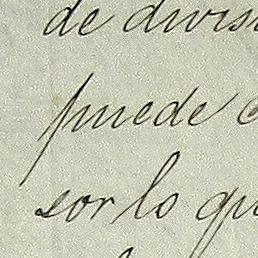 de divis
puede
sor lo qu